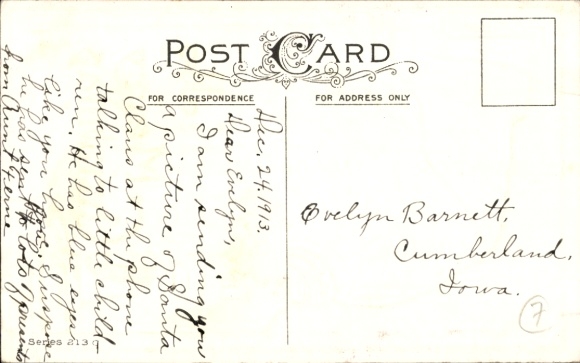 POST CARD
FOR CORRESPONDENCE
FOR ADDRESS ONLY
Dec. 24, 1913.
Dear Evelyn,
I am sending you
a picture of Santa
Claus at the phone
talking to little child-
ren. He has blue eyes
like you have. I suppose
he has sent lots of presents
from Aunt Ferne
Evelyn Barnett,
Cumberland,
Iowa.
7
Series 213